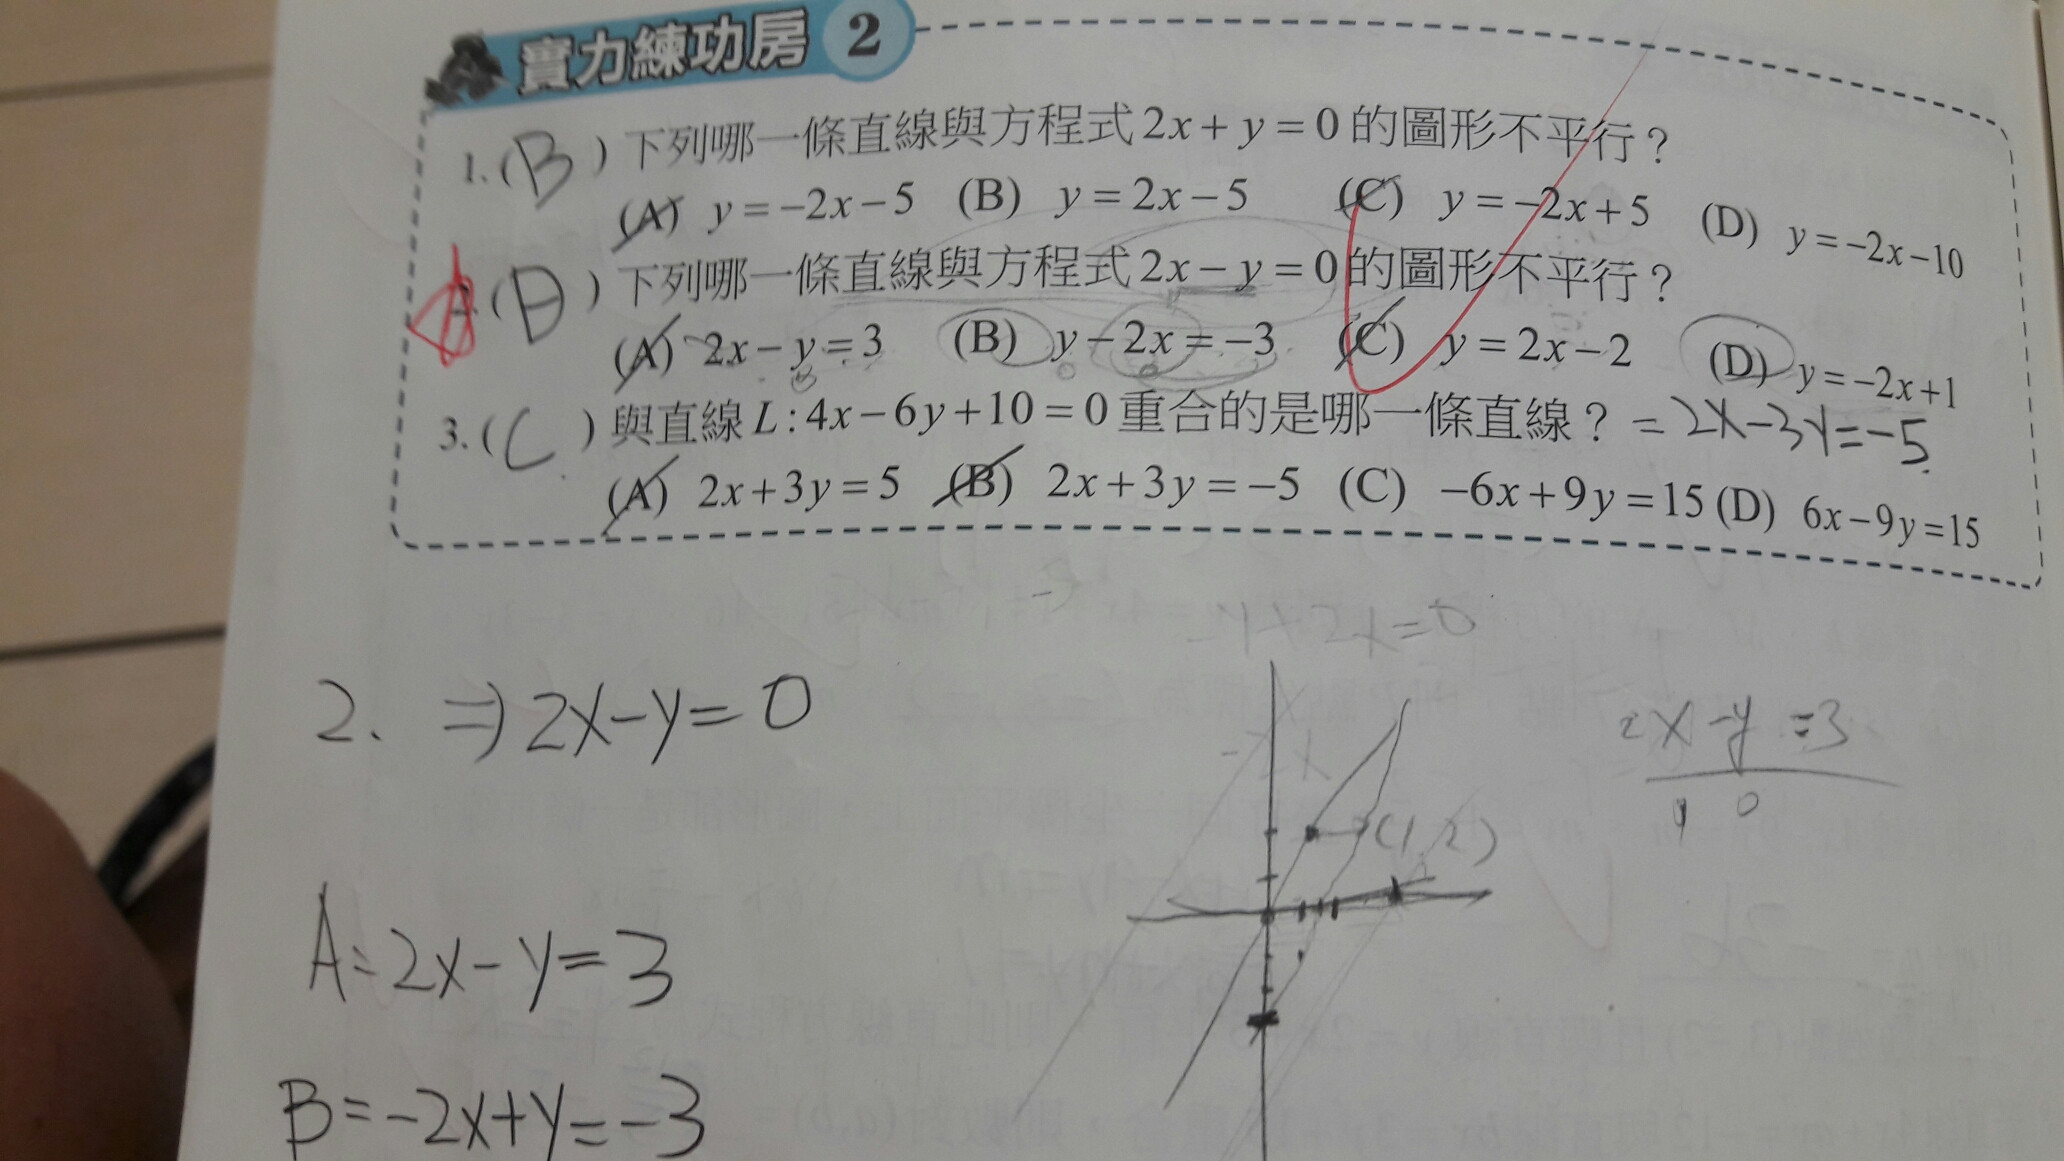 實力練功房 2
1. (B) 下列哪一條直線與方程式 2x + y = 0 的圖形不平行？
(A) y = −2x − 5 (B) y = 2x − 5 (C) y = −2x + 5 (D) y = −2x − 10
(D) 下列哪一條直線與方程式 2x − y = 0 的圖形不平行？
(A) 2x − y = 3 (B) y − 2x = −3 (C) y = 2x − 2 (D) y = −2x + 1
3. (C) 與直線 L : 4x − 6y + 10 = 0 重合的是哪一條直線？ = 2x − 3y = −5
(A) 2x + 3y = 5 (B) 2x + 3y = −5 (C) −6x + 9y = 15 (D) 6x − 9y = 15
−y + 2x = 0
2. ⇒ 2x − y = 0
2x − y = 3
0
−2x
(1, 2)
A = 2x − y = 3
B = −2x + y = −3